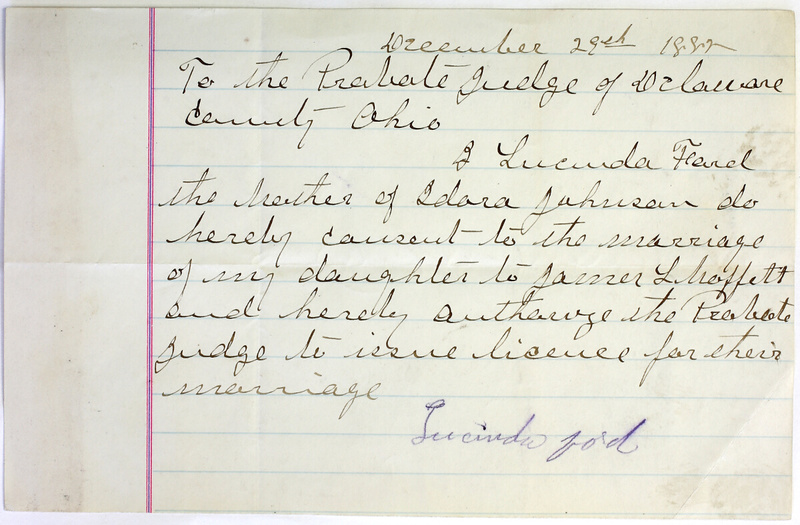 December 29th 1892
To the Probate Judge of Delaware
County Ohio
I Lucinda Ford
the Mother of Idora Johnson do
hereby consent to the marriage
of my daughter to James L Moffett
and hereby authorize the Probate
Judge to issue licence for their
marriage
Lucinda ford